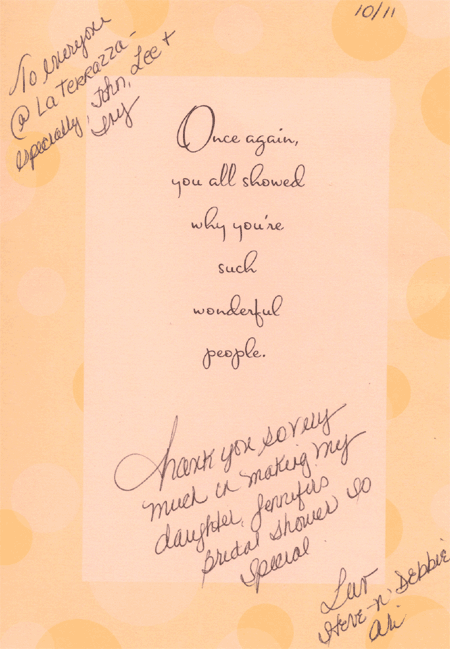 10/11
To everyone
@ La Terrazza -
especially, John, Lee +
Once again,
you all showed
why you're
such
wonderful
people.
Thank you so very
much in making my
daughter, Jennifers
Bridal Shower so
Special
Luv
Steve-n' Debbie